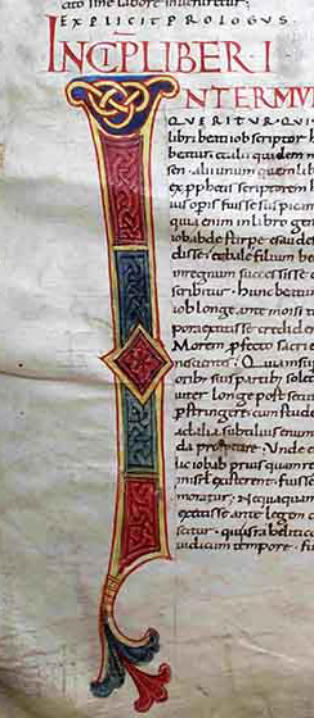 cito sine labore inveniretur;
EXPLICIT PROLOGUS
INCIP LIBER I
NTERMU
QUERITUR QUI
libri beati iob scriptor h
beatus
sen alii unum quemlib
ex pphetis scriptorem
ius opis fuisse suspican
quia enim in libro gen
iobab de stirpe esau de
disse et bale filium be
in regnum successisse
scribitur hunc beatum
iob longe ante moisi t
pora extitisse credider
Morem pfecto sacri e
nescientes Quia in su
orib; suis partib; solet
uter longe post secu
pstringere cum stude
ad alia subtilius enum
da properare Unde e
uc iobab prius quam re
misrl existerent fuisse
moratur Nequaquam
extitisse ante legem
scitur qui isrlitico
iudicum tempore fu